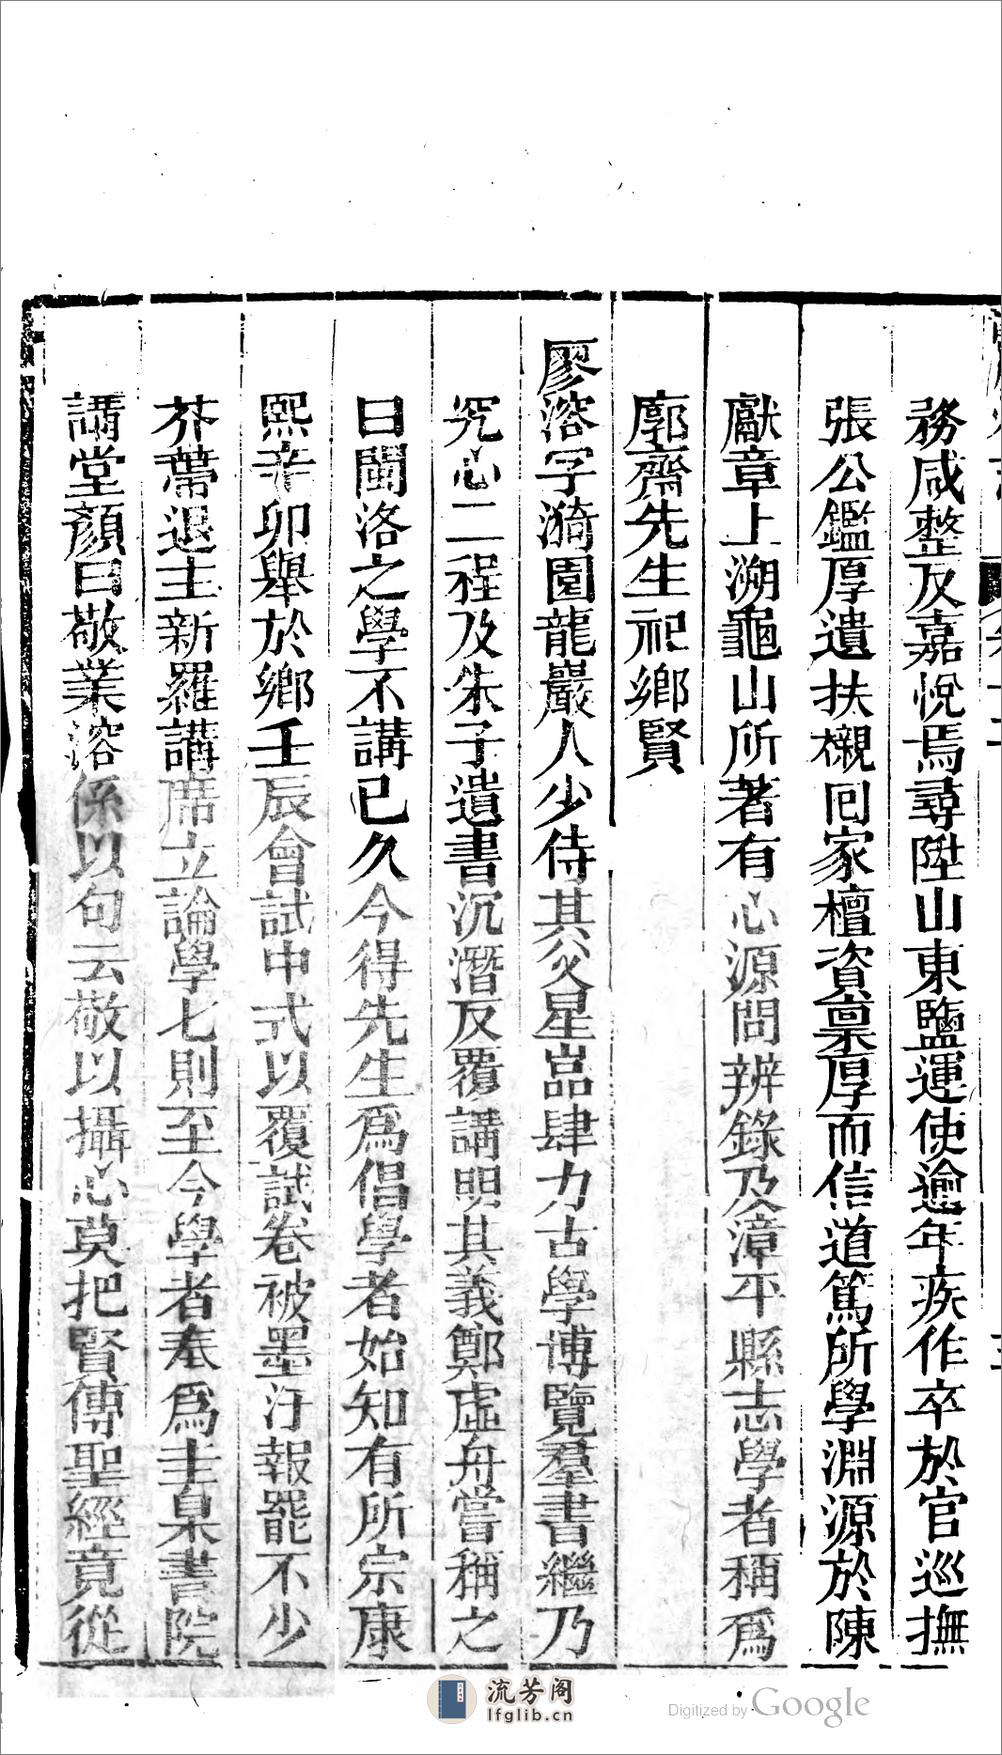 務咸整反嘉悅焉尋陞山東鹽運使逾年疾作卒於官巡撫
張公鑑厚遺扶櫬囘家檀資稟厚而信道篤所學淵源於陳
獻章上溯龜山所著有心源問辨錄及漳平縣志學者稱爲
廓齋先生祀鄉賢
廖溶字漪園龍巖人少侍其父星嵓肆力古學博覽羣書繼乃
究心二程及朱子遺書沉潛反覆講明其義鄭虛舟嘗稱之
曰閩洛之學不講已久今得先生爲倡學者始知有所宗康
熙辛卯舉於鄉壬辰會試中式以覆試卷被墨汙報罷不少
芥蔕退主新羅講席立論學七則至今學者奉爲圭臬書院
講堂顏曰敬業溶係以句云敬以攝心莫把賢傳聖經竟從
流芳阁
lfglib.cn
Digitized by Google